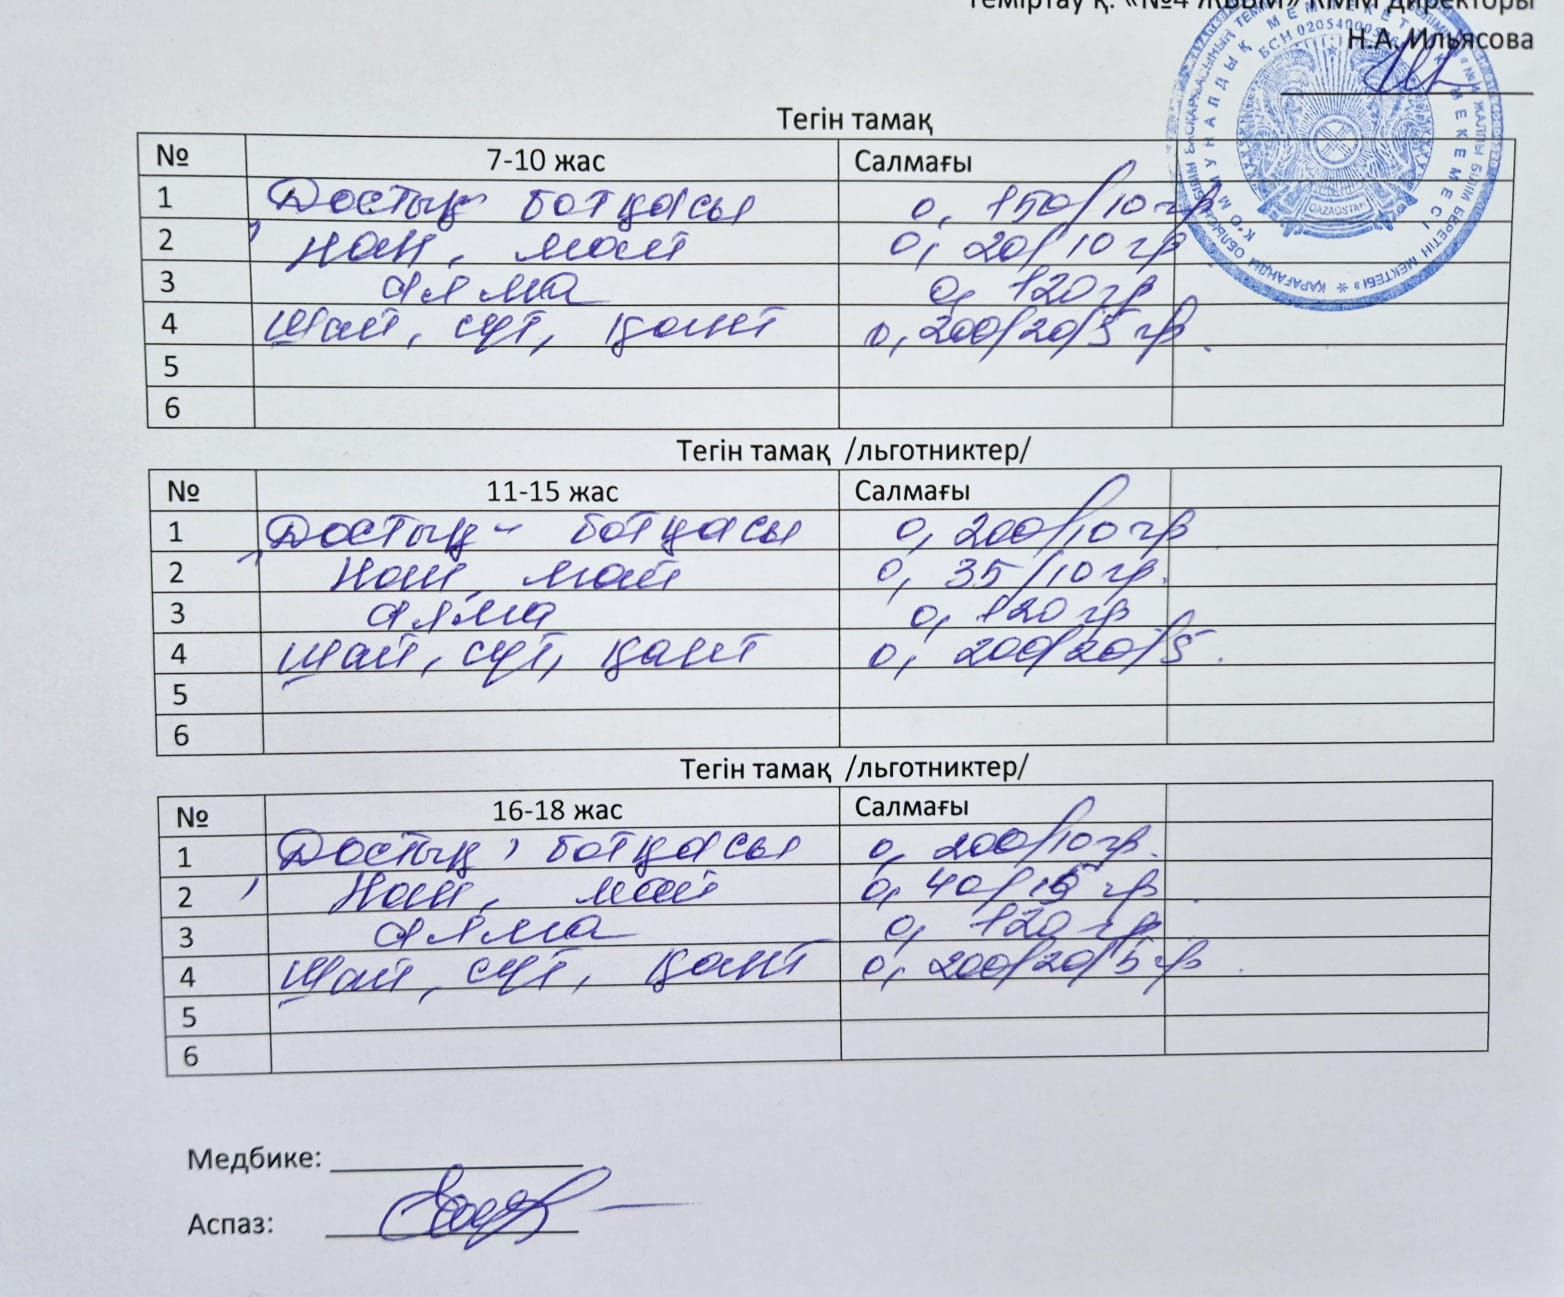 Теміртау қ. «№4 ЖББМ» КММ директоры
Н.А. Ильясова
Тегін тамақ
№ 7-10 жас Салмағы
1 Достық ботқасы 0, 150/10 гр
2 Нан, май 0, 20/10 гр
3 алма 0, 120 гр
4 Шай, сүт, қант 0, 200/20/5 гр.
5
6
Тегін тамақ /льготниктер/
№ 11-15 жас Салмағы
1 Достық - ботқасы 0, 200/10 гр
2 Нан, май 0, 35/10 гр.
3 алма 0, 120 гр
4 шай, сүт, қант 0, 200/20/5.
5
6
Тегін тамақ /льготниктер/
№ 16-18 жас Салмағы
1 Достық ботқасы 0, 200/10 гр.
2 Нан, май 0, 40/15 гр.
3 алма 0, 120 гр
4 Шай, сүт, қант 0, 200/20/5 гр.
5
6
Медбике:
Аспаз:
QAZAQSTAN